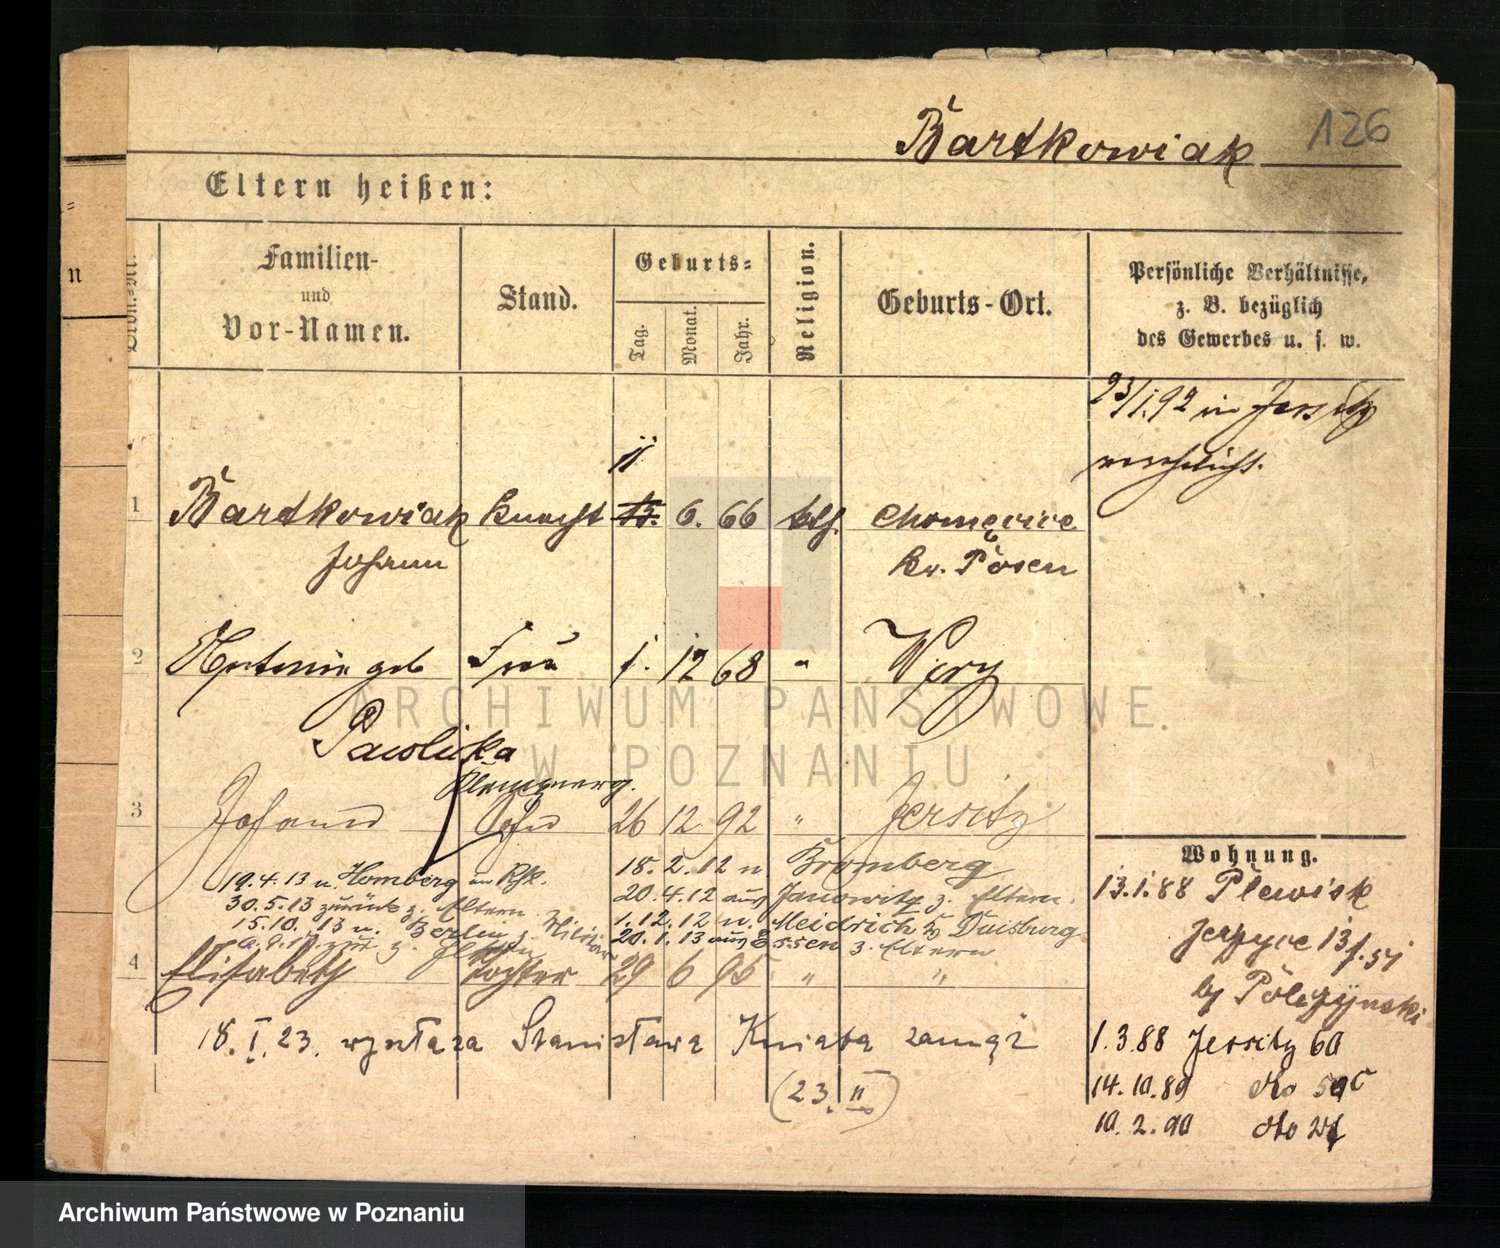 Bartkowiak 126
Eltern heißen:
Ordn.-Nr.
Familien-
und
Vor-Namen.
Stand.
Geburts-
Tag.
Monat.
Jahr.
Religion.
Geburts-Ort.
Persönliche Verhältnisse,
z. B. bezüglich
des Gewerbes u. s. w.
23/1.92 in Jersitz
verehelicht.
11
1 Bartkowiak Knecht 13. 6. 66 kth. Chomęcice
Johann Kr. Posen
2 Antonie geb Frau 1. 12 68 " Wiry
Pawlicka
Klempnerg.
3 Johann Sohn 26 12 92 " Jersitz
18.2.12 n Bromberg
19.4.13 n. Homberg am Rh.
20.4.12 aus Janowitz z. Eltern.
30.5.13 zurück z. Eltern
1.12.12 n. Meidrich b Duisburg
15.10.13 n. Berlin z. Militär
20.1.13 aus Essen z. Eltern
zur z. Eltern
4 Elisabeth Tochter 29 6 95 " "
18.I.23. Stanisława Kniata zamąż
(23.II)
Wohnung.
13.1.88 Plewisk
Jerzyce 13
by
1.3.88 Jersitz 60
14.10.89 dto
10.2.90 dto
ARCHIWUM PAŃSTWOWE
W POZNANIU
Archiwum Państwowe w Poznaniu